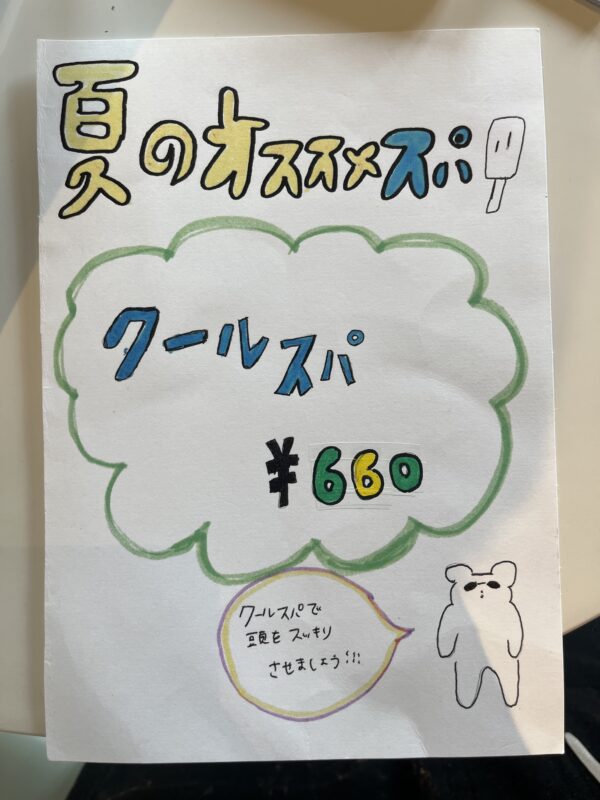 夏のオススメスパ
クールスパ
¥660
クールスパで
頭をスッキリ
させましょう!!!